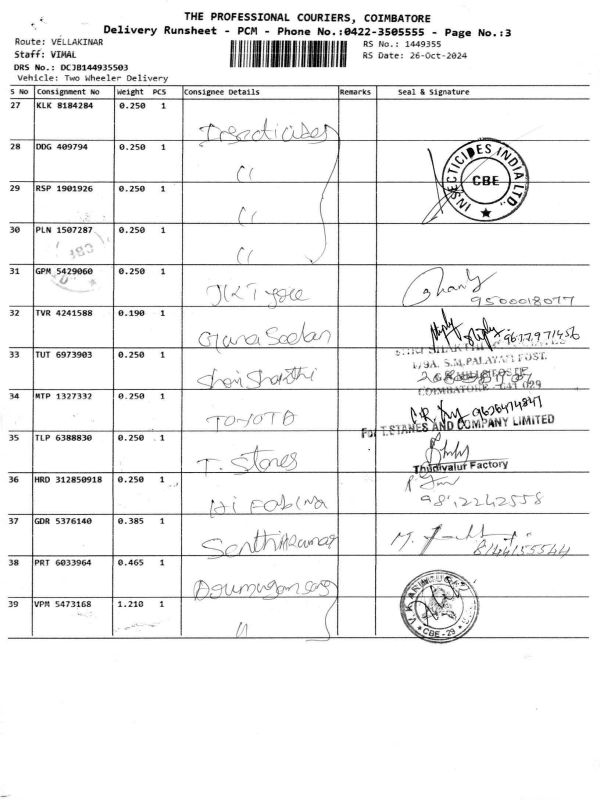 THE PROFESSIONAL COURIERS, COIMBATORE
Delivery Runsheet - PCM - Phone No.:0422-3505555 - Page No.:3
Route: VELLAKINAR
RS No.: 1449355
Staff: VIMAL
RS Date: 26-Oct-2024
DRS No.: DCJB144935503
Vehicle: Two Wheeler Delivery
S No Consignment No Weight PCS Consignee Details Remarks Seal & Signature
27 KLK 8184284 0.250 1
Insecticides
28 DDG 409794 0.250 1
INSECTICIDES INDIA LTD.,
CBE
29 RSP 1901926 0.250 1
30 PLN 1507287 0.250 1
CBE
31 GPM 5429060 0.250 1
JK Tyre
9500018077
32 TVR 4241588 0.190 1
33 TUT 6973903 0.250 1
1/9A, S.M.PALAYAM POST,
34 MTP 1327332 0.250 1
TOYOTA
9626474847
For T.STANES AND COMPANY LIMITED
35 TLP 6388830 0.250 1
T. Stanes
Thudiyalur Factory
36 HRD 312850918 0.250 1
37 GDR 5376140 0.385 1
M.
8144155544
38 PRT 6033964 0.465 1
39 VPM 5473168 1.210 1
CBE-29